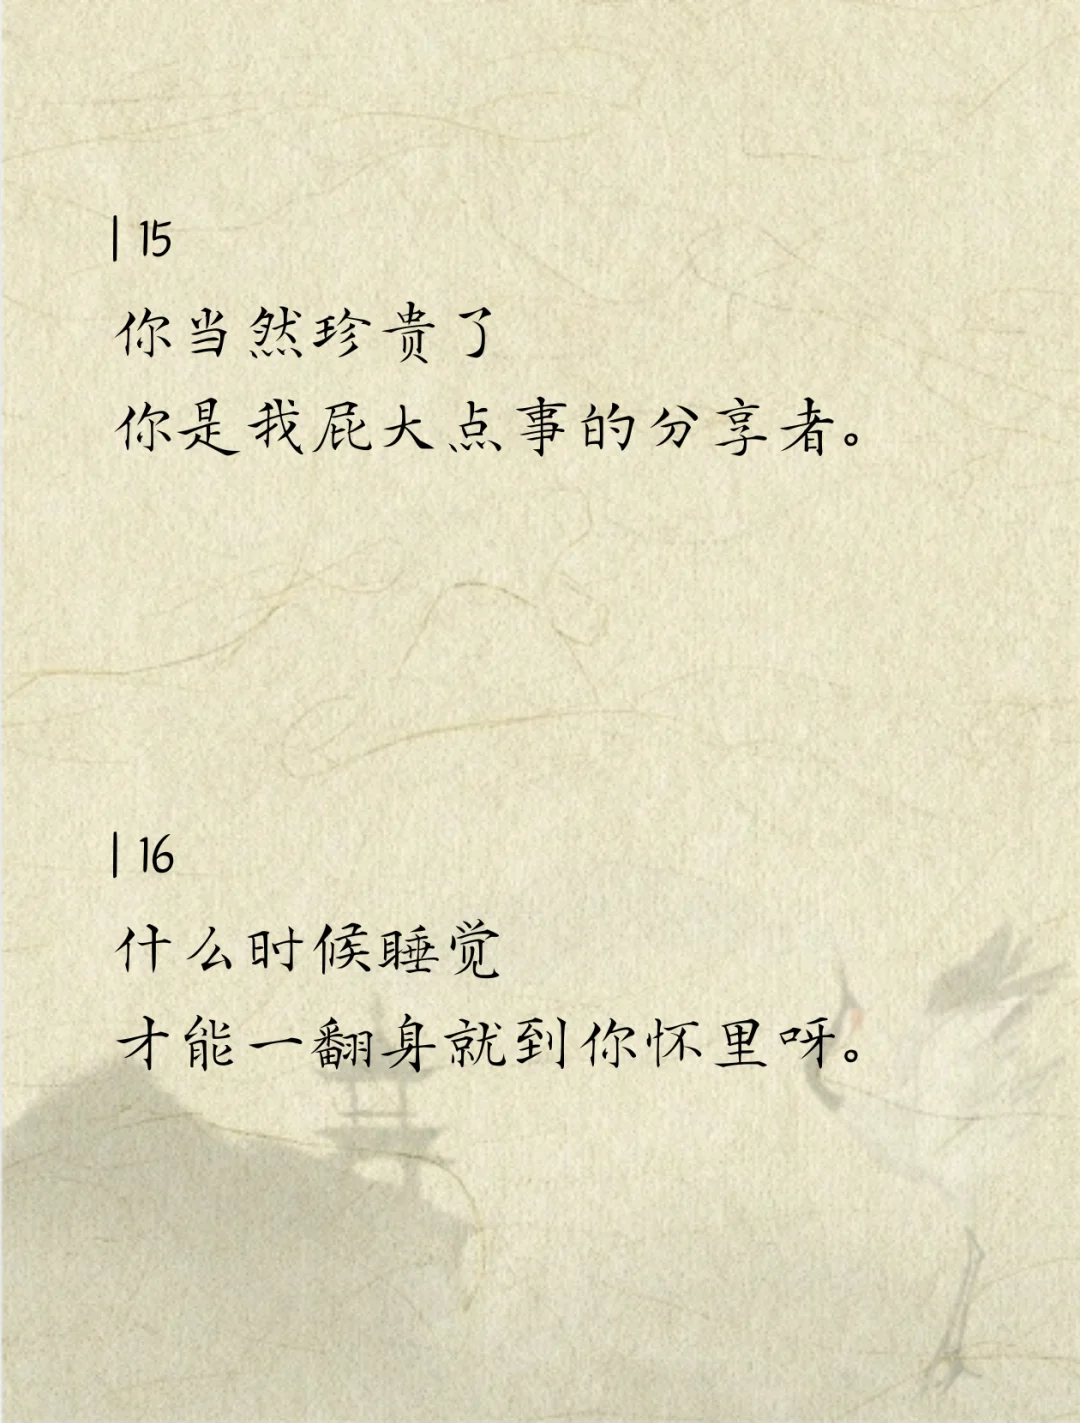 | 15
你当然珍贵了
你是我屁大点事的分享者。
| 16
什么时候睡觉
才能一翻身就到你怀里呀。